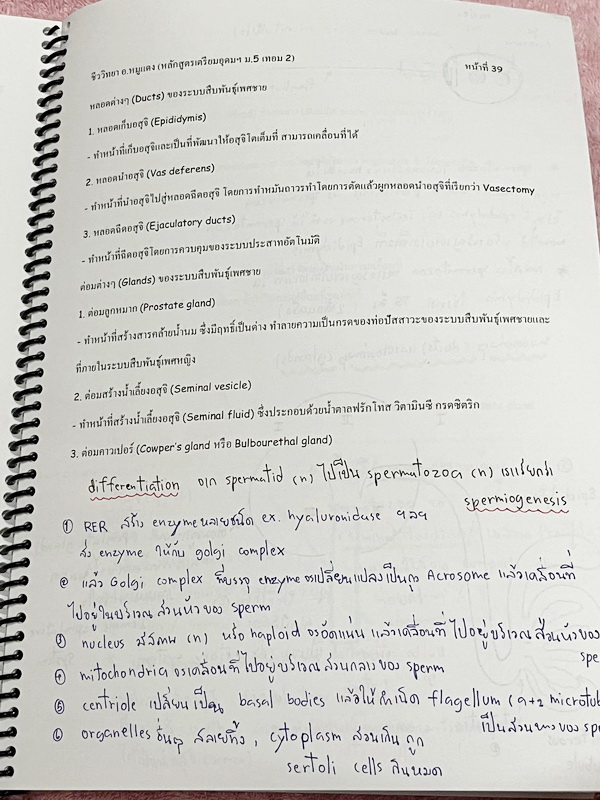 ชีววิทยา อ.หมูแดง (หลักสูตรเตรียมอุดมฯ ม.5 เทอม 2)
หน้าที่ 39
หลอดต่างๆ (Ducts) ของระบบสืบพันธุ์เพศชาย
1. หลอดเก็บอสุจิ (Epididymis)
- ทำหน้าที่เก็บอสุจิและเป็นที่พัฒนาให้อสุจิโตเต็มที่ สามารถเคลื่อนที่ได้
2. หลอดนำอสุจิ (Vas deferens)
- ทำหน้าที่นำอสุจิไปสู่หลอดฉีดอสุจิ โดยการทำหมันถาวรทำโดยการตัดแล้วผูกหลอดนำอสุจิที่เรียกว่า Vasectomy
3. หลอดฉีดอสุจิ (Ejaculatory ducts)
- ทำหน้าที่ฉีดอสุจิโดยการควบคุมของระบบประสาทอัตโนมัติ
ต่อมต่างๆ (Glands) ของระบบสืบพันธุ์เพศชาย
1. ต่อมลูกหมาก (Prostate gland)
- ทำหน้าที่สร้างสารคล้ายน้ำนม ซึ่งมีฤทธิ์เป็นด่าง ทำลายความเป็นกรดของท่อปัสสาวะของระบบสืบพันธุ์เพศชายและ
ที่ภายในระบบสืบพันธุ์เพศหญิง
2. ต่อมสร้างน้ำเลี้ยงอสุจิ (Seminal vesicle)
- ทำหน้าที่สร้างน้ำเลี้ยงอสุจิ (Seminal fluid) ซึ่งประกอบด้วยน้ำตาลฟรักโทส วิตามินซี กรดซิตริก
3. ต่อมคาวเปอร์ (Cowper's gland หรือ Bulbourethal gland)
differentiation จาก spermatid (n) ไปเป็น spermatozoa (n) เราเรียกว่า
spermiogenesis
① RER สร้าง enzyme หลายชนิด ex. hyaluronidase ฯลฯ
ส่ง enzyme ให้กับ golgi complex
② แล้ว Golgi complex ที่บรรจุ enzyme จะเปลี่ยนแปลงเป็นถุง Acrosome แล้วเคลื่อนที่
ไปอยู่ในบริเวณ ส่วนหัวของ sperm
③ nucleus มีสภาพ (n) หรือ haploid จะอัดแน่น แล้วเคลื่อนที่ ไปอยู่บริเวณ ส่วนหัวของ
spe
④ mitochondria จะเคลื่อนที่ไปอยู่บริเวณส่วนกลางของ sperm
⑤ centriole เปลี่ยนเป็น basal bodies แล้วให้กำเนิด flagellum (9+2 microtub
เป็นส่วนหางของ spe
⑥ organelles อื่นๆ สลายทิ้ง , cytoplasm ส่วนเกิน ถูก
sertoli cells กินหมด